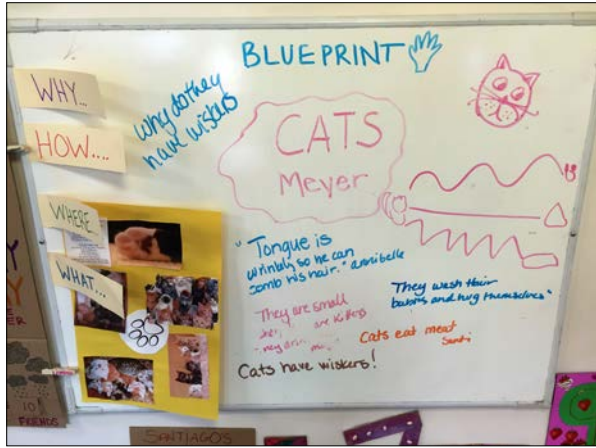 BLUEPRINT
WHY...
HOW....
WHERE...
WHAT...
why do they
have wiskers
CATS
Meyer
"Tongue is
wrinkly so he can
comb his hair." Annibelle
They are small
are kittens
They wash their
babies and hug themselves"
Cats eat meat
Santi
Cats have wiskers!
10
FRIENDS
SANTIAGOS